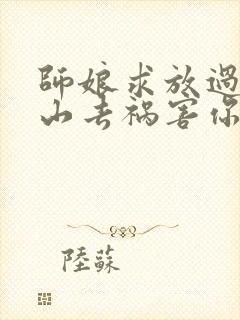 師娘求放過
山去禍害你
陸蘇